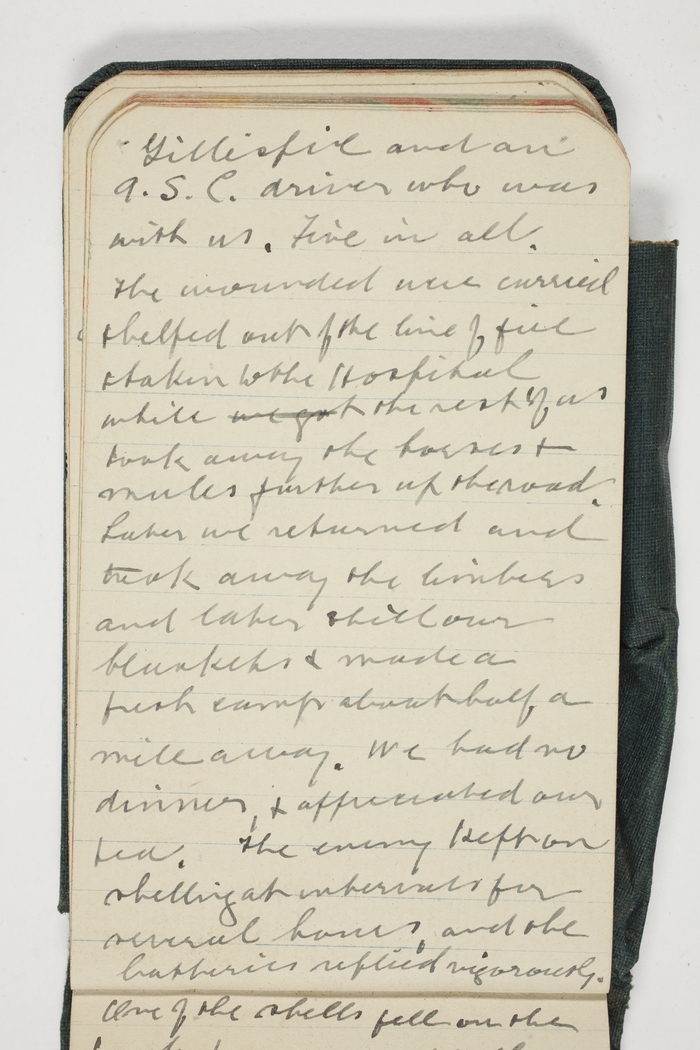 Gillespie and an
A.S.C. driver who was
with us. Five in all.
The wounded were carried
& helped out of the line of fire
& taken to the Hospital
while we got the rest of us
took away the horses &
mules further up the road.
Later we returned and
took away the limbers
and later still our
blankets & made a
fresh camp about half a
mile away. We had no
dinner, & appreciated our
tea. The enemy kept on
shelling at intervals for
several hours, and the
batteries replied vigorously.
One of the shells fell on the